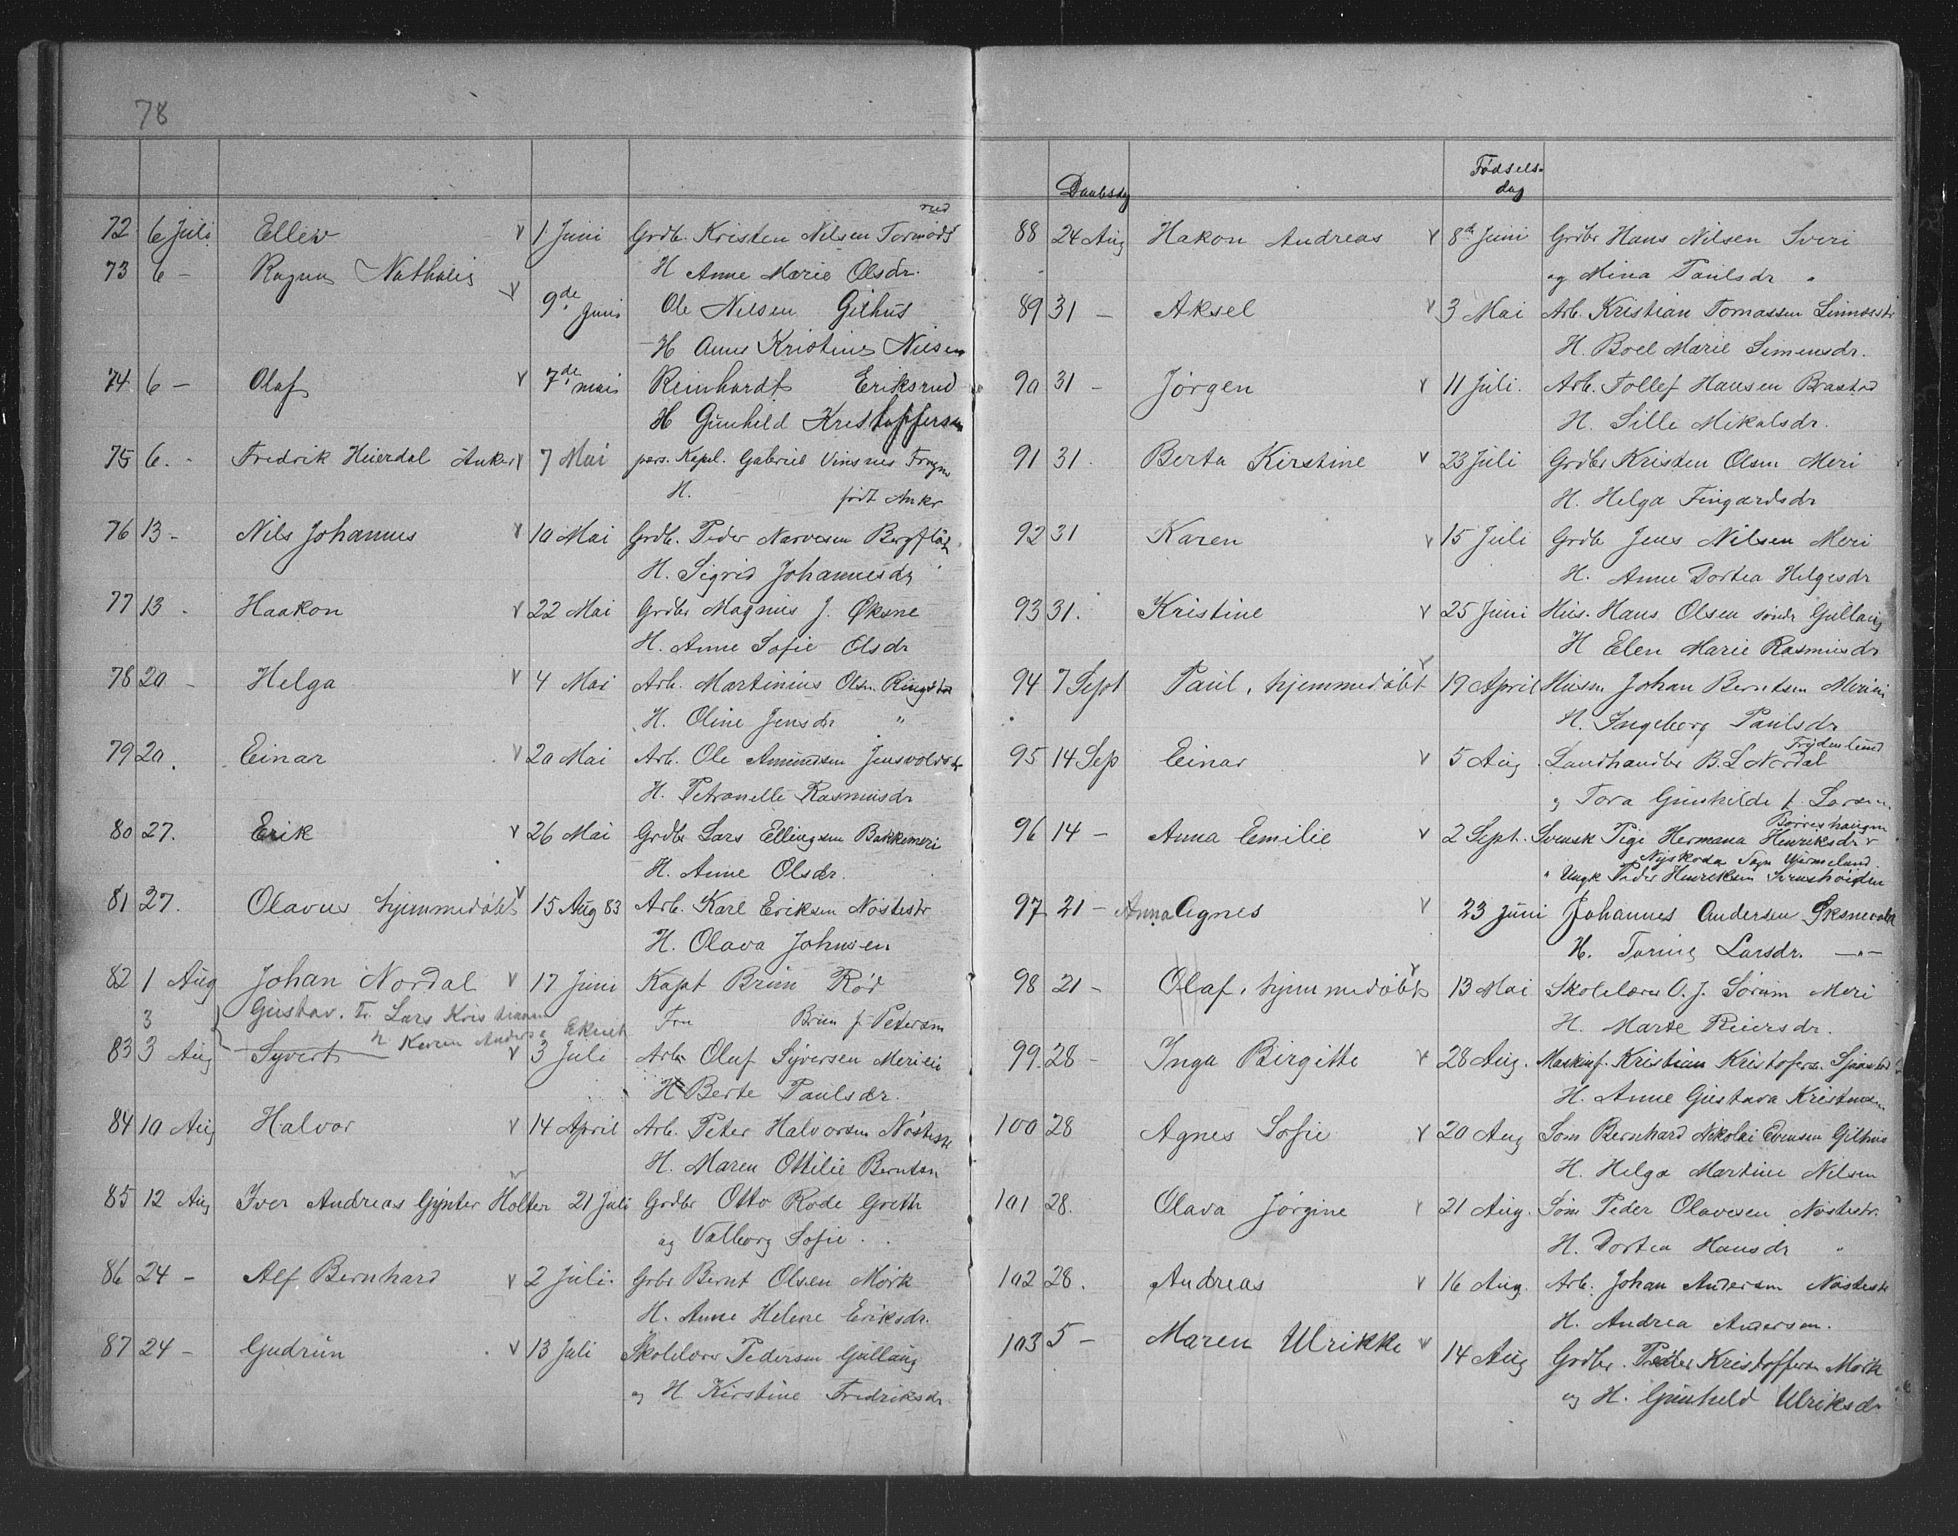 78
72 6 Juli Ellev v 1 Juni Grdb. Kristen Nilsen Tormods
rud
H Anne Marie Olsdr.
73 6 - Ragna Nathalie v 9de Juni Ole Nilsen Gilhus
H Anne Kristine Nilsen
74 6 - Olaf v 7de mai Reinhardt Eriksrud
H Gunhild Kristoffersen
75 6. - Fredrik Heierdal Anker v 7 Mai pers. Kapel. Gabriel Vinsnes
H. født Anker
76 13 - Nils Johannes v 10 Mai Grdb. Peder Narvesen Bergflødt
H. Sigrid Johannesdr
77 13 - Haakon v 22 Mai Grdbr Magnus J. Øksne
H. Anne Sofie Olsdr
78 20 - Helga v 4 Mai Arb. Martinius Olsen
H. Oline Jensdr "
79 20. Einar v 20 Mai Arb. Ole Amundsen Jensvoldstr
H. Petronelle Rasmusdr
80 27. Erik v 26 Mai Grdbr Lars Ellingsen Bakkemeri
H. Anne Olsdr.
81 27. Olavus hjemmedøbt v 15 Aug 83 Arb. Karl Eriksen Nøstestr
H. Olava Johnsen
82 1 Aug Johan Nordal v 17 Juni Kapt Brun Rød
3 Gustav. Fr. Lars Kristiansen Fru Brun f. Petersen
H Karen Anders
83 3 Aug Syvert v 3 Juli Arb. Oluf Syversen Meriei
H Berte Paulsdr.
84 10 Aug Halvor v 14 April Arb. Peter Halvorsen Nøstestr
H. Maren Ottilie Berntsen
85 12 Aug Iver Andreas Gynter Holter 21 Juli Grdbr Otto Rode Groth
og Valborg Sofie
86 24 - Alf Bernhard v 2 Juli. Grbr Bernt Olsen Mörk
H. Anne Helene Eriksdr.
87 24 - Gudrun v 13 Juli Skolelærer Pedersen Gullaug
og H Kirstine Fredriksdr.
Daabsdag Fødsels-
dag
88 24 Aug Hakon Andreas v 8de Juni Grdbr Hans Nilsen Sveri
og Mina Paulsdr "
89 31 - Aksel v 3 Mai Arb. Kristian Tomassen
H. Boel Marie Simensdr.
90 31 - Jørgen v 11 Juli. Arb. Tollef Hansen Brastad
H. Sille Mikalsdr.
91 31. Berta Kirstine v 23 Juli Grdbr Kristen Olsen Meri
H. Helga Fingardsdr
92 31 Karen v 15 Juli Grdbr Jens Nilsen Meri
H. Anne Dortea Helgesdr
93 31. Kristine v 25 Juni Hus. Hans Olsen søndr Gullaug
H Elen Marie Rasmusdr
94 7 Sept Paul, hjemmedøbt v 19 April Husm Johan Berntsen Meriei
H. Ingeborg Paulsdr
95 14 Sep Einar v 5 Aug. Landhandler B. L Nordal
Frydenlund
og Tora Gunhilde f. Larsen
96 14 - Anna Emilie v 2 Sept. Svensk Pige Hermana Henriksdr
Borreshaugen
Nyskoda Sogn Wermeland.
" Ungk Peder Henriksen
97 21 - Anna Agnes v 23 Juni Johannes Andersen Øksnevald
H. Torine Larsdr. -"-
98 21 - Olaf, hjemmedøbt v 13 Mai Skolelærer O. J. Sørum Meri
H. Marte Reiersdr.
99. 28 - Inga Birgitte v 28 Aug. Maskinf. Kristian Kristofersen
H. Anne Gustava Kristensen
100 28 Agnes Sofie v 20 Aug Søm Bernhard Nikolai Evensen Gilhus
H. Helga Martine Nilsen
101 28. Olava Jørgine v 21 Aug. Søm Peder Olavesen Nøstestr.
H. Dortea Hansdr "
102 28. Andreas v 16 Aug. Arb. Johan Andersen Nøstestr
H. Andrea Andersen.
103 5 - Maren Ulrikke v 14 Aug Grdbr. Peder Kristoffersen Mörk
og H. Gunhild Ulriksdr